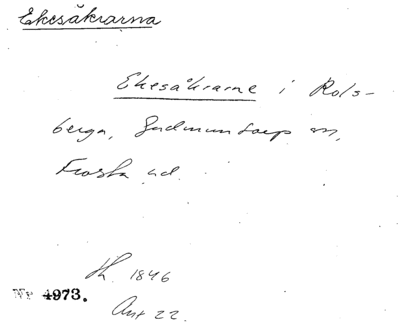 Ekesåkrarna
Ekesåkrarne i Rols-
berga, Gudmuntorp sn,
Frosta hd.
Sk. 1846
Nr 4973.
Ant 22.